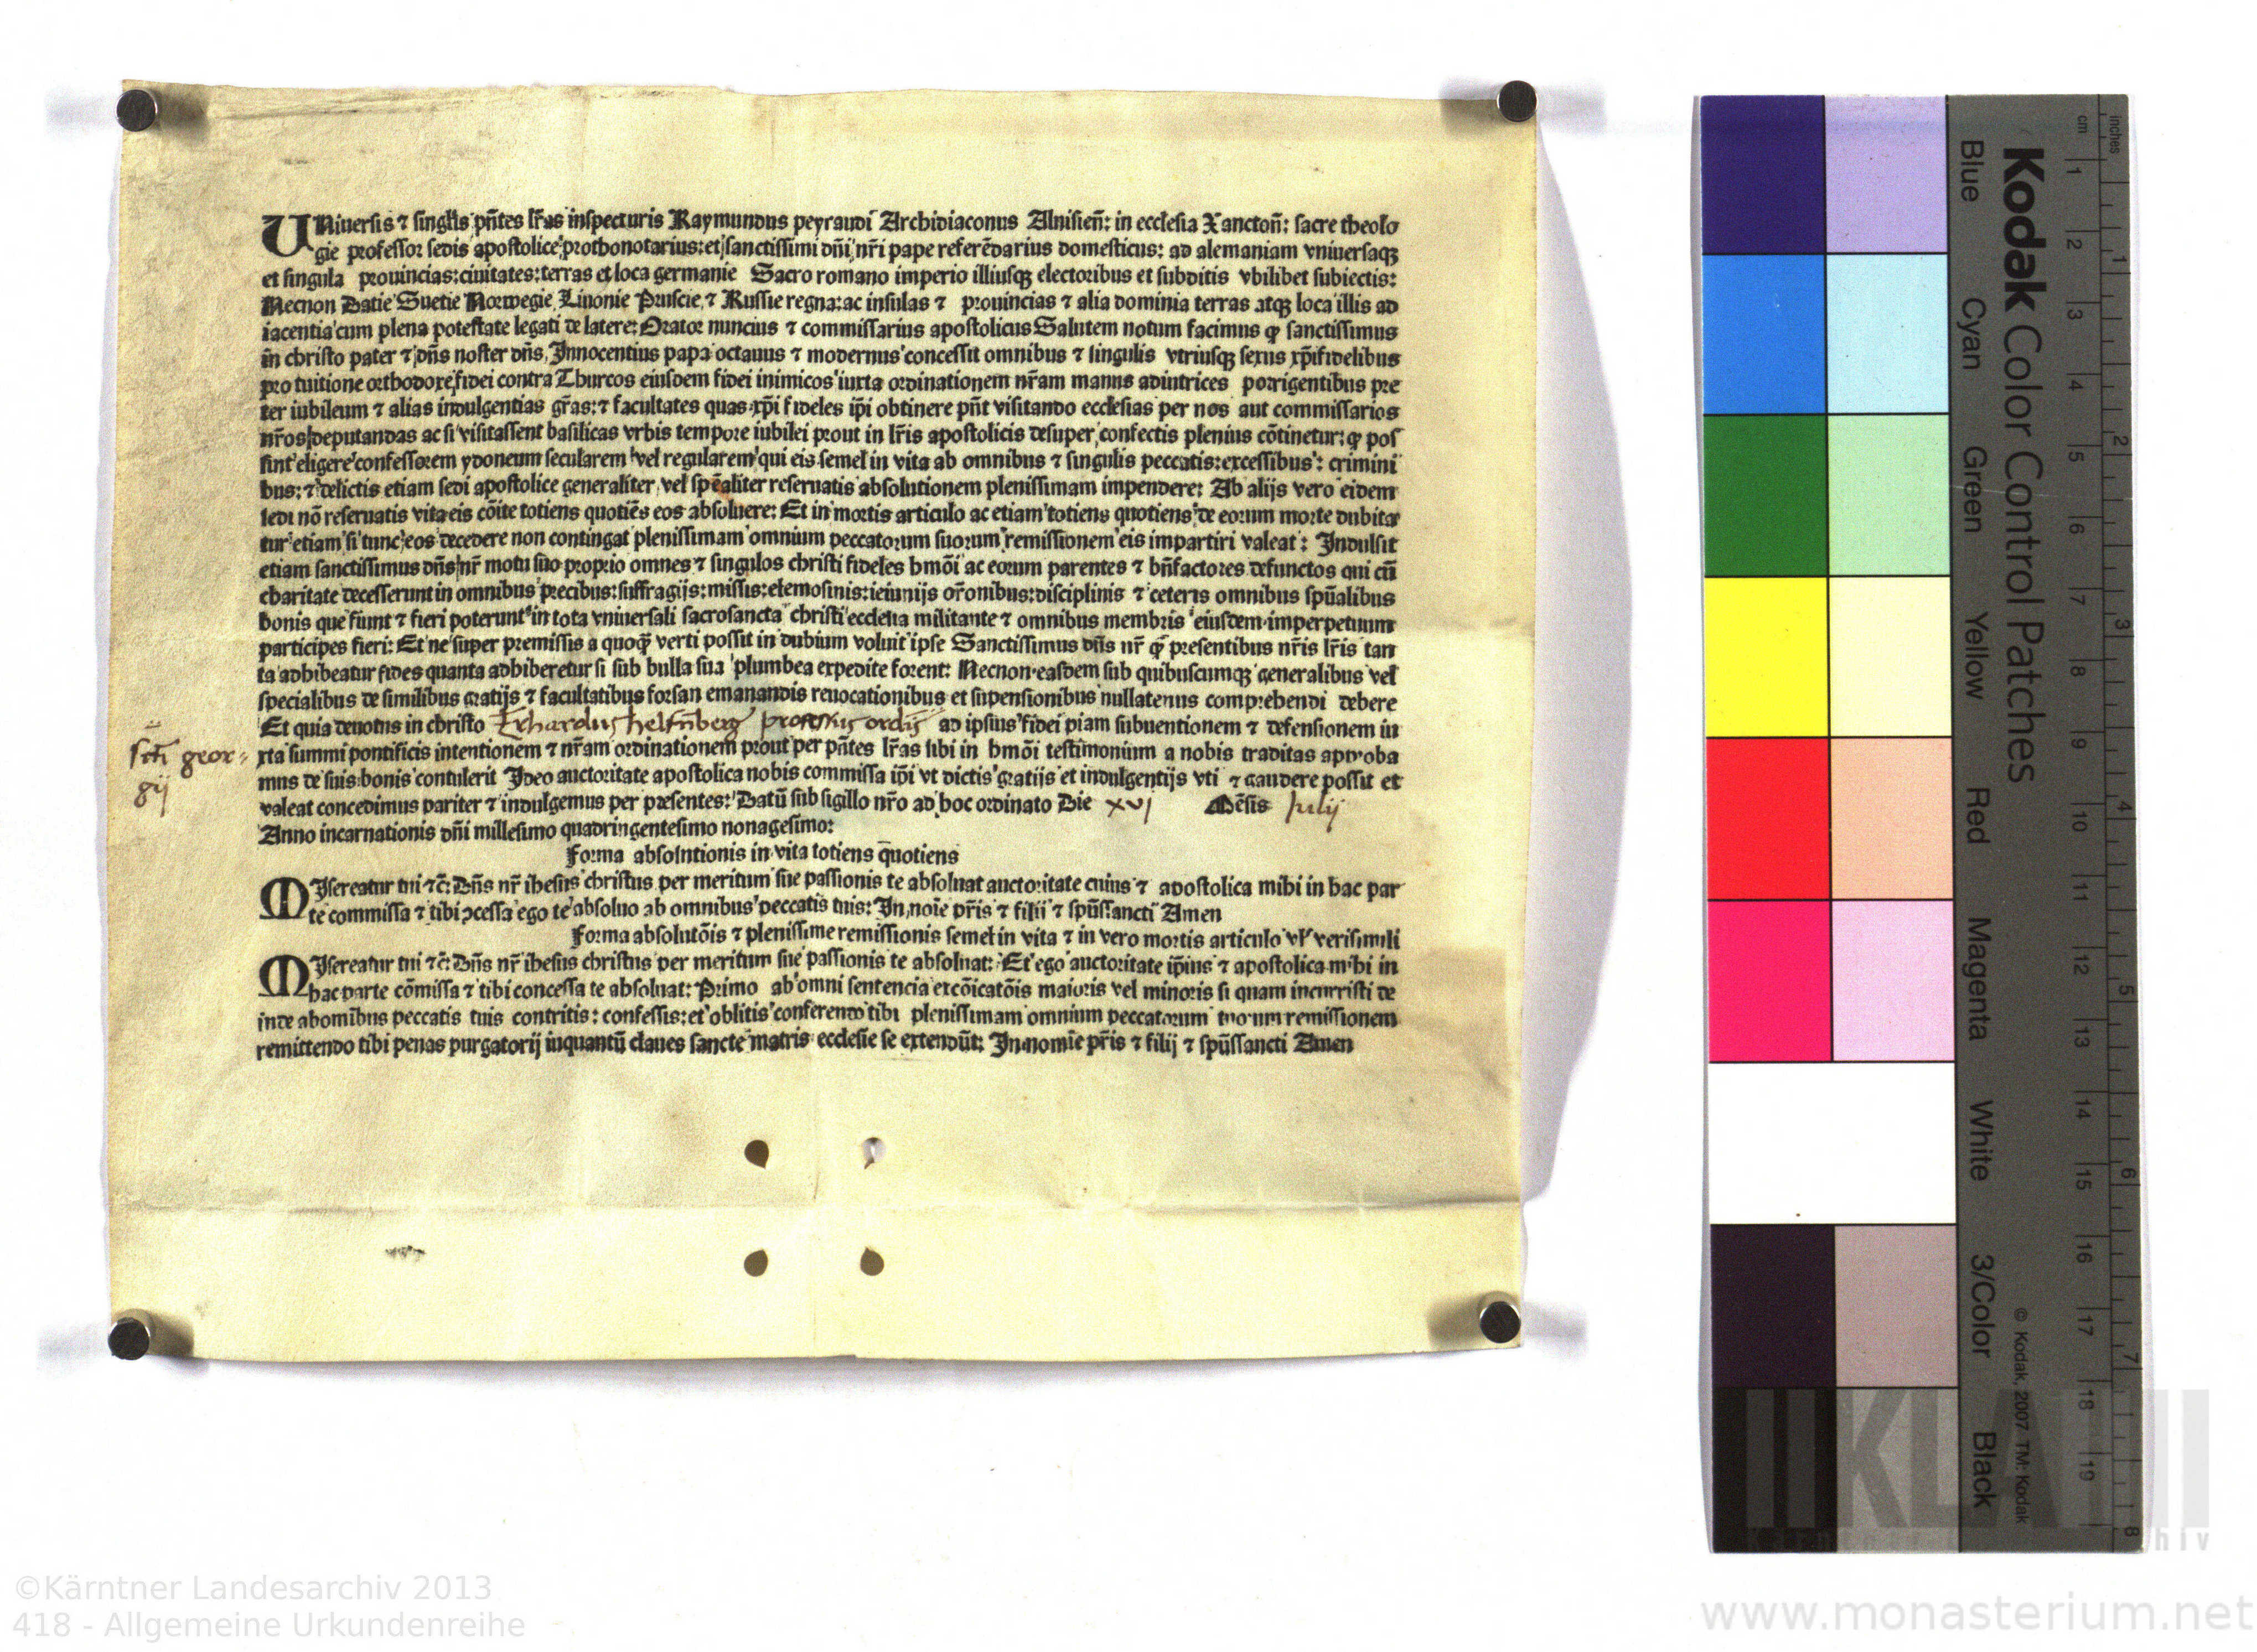 UNiuersis ⁊ singlis pñtes lr̃as inspecturis Raymundus peyraudi Archidiaconus Alnisieñ: in ecclesia Xanctoñ: sacre theolo
gie professor sedis apostolice prothonotarius: et sanctissimi dñi nr̃i pape referẽdarius domesticus: ad alemaniam vniuersaqꝫ
et singula prouincias: ciuitates: terras et loca germanie Sacro romano imperio illiusqꝫ electoribus et subditis vbilibet subiectis:
Necnon Datie Suetie Norwegie Liuonie Pruscie ⁊ Russie regna: ac insulas ⁊ prouincias ⁊ alia dominia terras atqꝫ loca illis ad
iacentia cum plena potestate legati de latere: Orator nuncius ⁊ commissarius apostolicus Salutem notum facimus ꝙ sanctissimus
in christo pater ⁊ dñs noster dñs, Innocentius papa octauus ⁊ modernus concessit omnibus ⁊ singulis vtriusqꝫ sexus xp̃ifidelibus
pro tuitione orthodoxe fidei contra Thurcos eiusdem fidei inimicos iuxta ordinationem nr̃am manus adiutrices porrigentibus pre
ter iubileum ⁊ alias indulgentias gr̃as: ⁊ facultates quas xp̃i fideles ip̃i obtinere pñt visitando ecclesias per nos aut commissarios
nr̃os deputandas ac si visitassent basilicas vrbis tempore iubilei prout in lr̃is apostolicis desuper confectis plenius cõtinetur: ꝙ pos
sint eligere confessorem ydoneum secularem vel regularem qui eis semel in vita ab omnibus ⁊ singulis peccatis: excessibus: crimini
bus: ⁊ delictis etiam sedi apostolice generaliter vel spẽaliter reseruatis absolutionem plenissimam impendere: Ab alijs vero eidem
sedi nõ reseruatis vita eis cõite totiens quotiẽs eos absoluere: Et in mortis articulo ac etiam totiens quotiens de eorum morte dubita
tur etiam si tunc eos decedere non contingat plenissimam omnium peccatorum suorum remissionem eis impartiri valeat: Indulsit
etiam sanctissimus dñs nr̃ motu suo proprio omnes ⁊ singulos christi fideles hmõi ac eorum parentes ⁊ bñfactores defunctos qui cũ
charitate decesserunt in omnibus precibus: suffragijs: missis: elemosinis: ieiunijs or̃onibus: disciplinis ⁊ ceteris omnibus spũalibus
bonis que fiunt ⁊ fieri poterunt in tota vniuersali sacrosancta christi ecclesia militante ⁊ omnibus membris eiusdem imperpetuum
participes fieri: Et ne super premissis a quoqꝫ verti possit in dubium voluit ipse Sanctissimus dñs nr̃ ꝙ presentibus nr̃is lr̃is tan
ta adhibeatur fides quanta adhiberetur si sub bulla sua plumbea expedite forent: Necnon easdem sub quibuscumqꝫ generalibus vel
specialibus de similibus gratijs ⁊ facultatibus forsan emanandis reuocationibus et supensionibus nullatenus comprehendi debere
Et quia deuotus in christo Erhardus helfñberg professus ordis̃ ad ipsius fidei piam subuentionem ⁊ defensionem iu
sct̃i geor=
gij
xta summi pontificis intentionem ⁊ nr̃am ordinationem prout per pñtes lr̃as sibi in hmõi testimonium a nobis traditas approba
mus de suis bonis contulerit Ideo auctoritate apostolica nobis commissa ip̃i vt dictis gratijs et indulgentijs vti ⁊ gaudere possit et
valeat concedimus pariter ⁊ indulgemus per presentes: Datũ sub sigillo nr̃o ad hoc ordinato Die xvj Mẽsis Julij
Anno incarnationis dñi millesimo quadringentesimo nonagesimo:
Forma absolutionis in vita totiens quotiens
MIsereatur tui ⁊c̃: Dñs nr̃ ihesus christus per meritum sue passionis te absoluat auctoritate cuius ⁊ apostolica mihi in hac par
te commissa ⁊ tibi ꝯcessa ego te absoluo ab omnibus peccatis tuis: In noĩe pr̃is ⁊ filii ⁊ spũssancti Amen
Forma absolutõis ⁊ plenissime remissionis semel in vita ⁊ in vero mortis articulo vl̓ verisimili
MIsereatur tui ⁊c̃: Dñs nr̃ ihesus christus per meritum sue passionis te absoluat: Et ego auctoritate ip̃ius ⁊ apostolica mihi in
hac parte cõmissa ⁊ tibi concessa te absoluat: Primo ab omni sentencia excõicatõis maioris vel minoris si quam incurristi de
inde ab omĩbus peccatis tuis contritis: confessis: et oblitis conferendo tibi plenissimam omnium peccatorum tuorum remissionem
remittendo tibi penas purgatorij inquantũ claues sancte matris ecclesie se extendũt: In nomĩe pr̃is ⁊ filij ⁊ spũssancti Amen
Kodak Color Control Patches
Blue Cyan Green Yellow Red Magenta White 3/Color Black
© Kodak, 2007 TM: Kodak
cm 1 2 3 4 5 6 7 8 9 10 11 12 13 14 15 16 17 18 19
inches 1 2 3 4 5 6 7 8
©Kärntner Landesarchiv 2013
418 - Allgemeine Urkundenreihe
www.monasterium.net